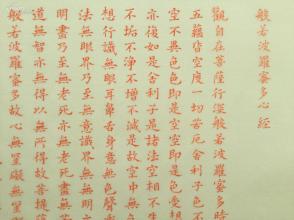 般若波羅蜜多心經
觀自在菩薩行深般若波羅蜜多時
五蘊皆空度一切苦厄舍利子色不
空不異色色即是空空即是色受想
亦復如是舍利子是諸法空相不生
不垢不淨不增不減是故空中無色
想行識無眼耳鼻舌身意無色聲香
法無眼界乃至無意識界無無明
明盡乃至無老死亦無老死盡無苦
道無智亦無得以無所得故菩提薩
般若波羅蜜多故心無罣礙無罣礙